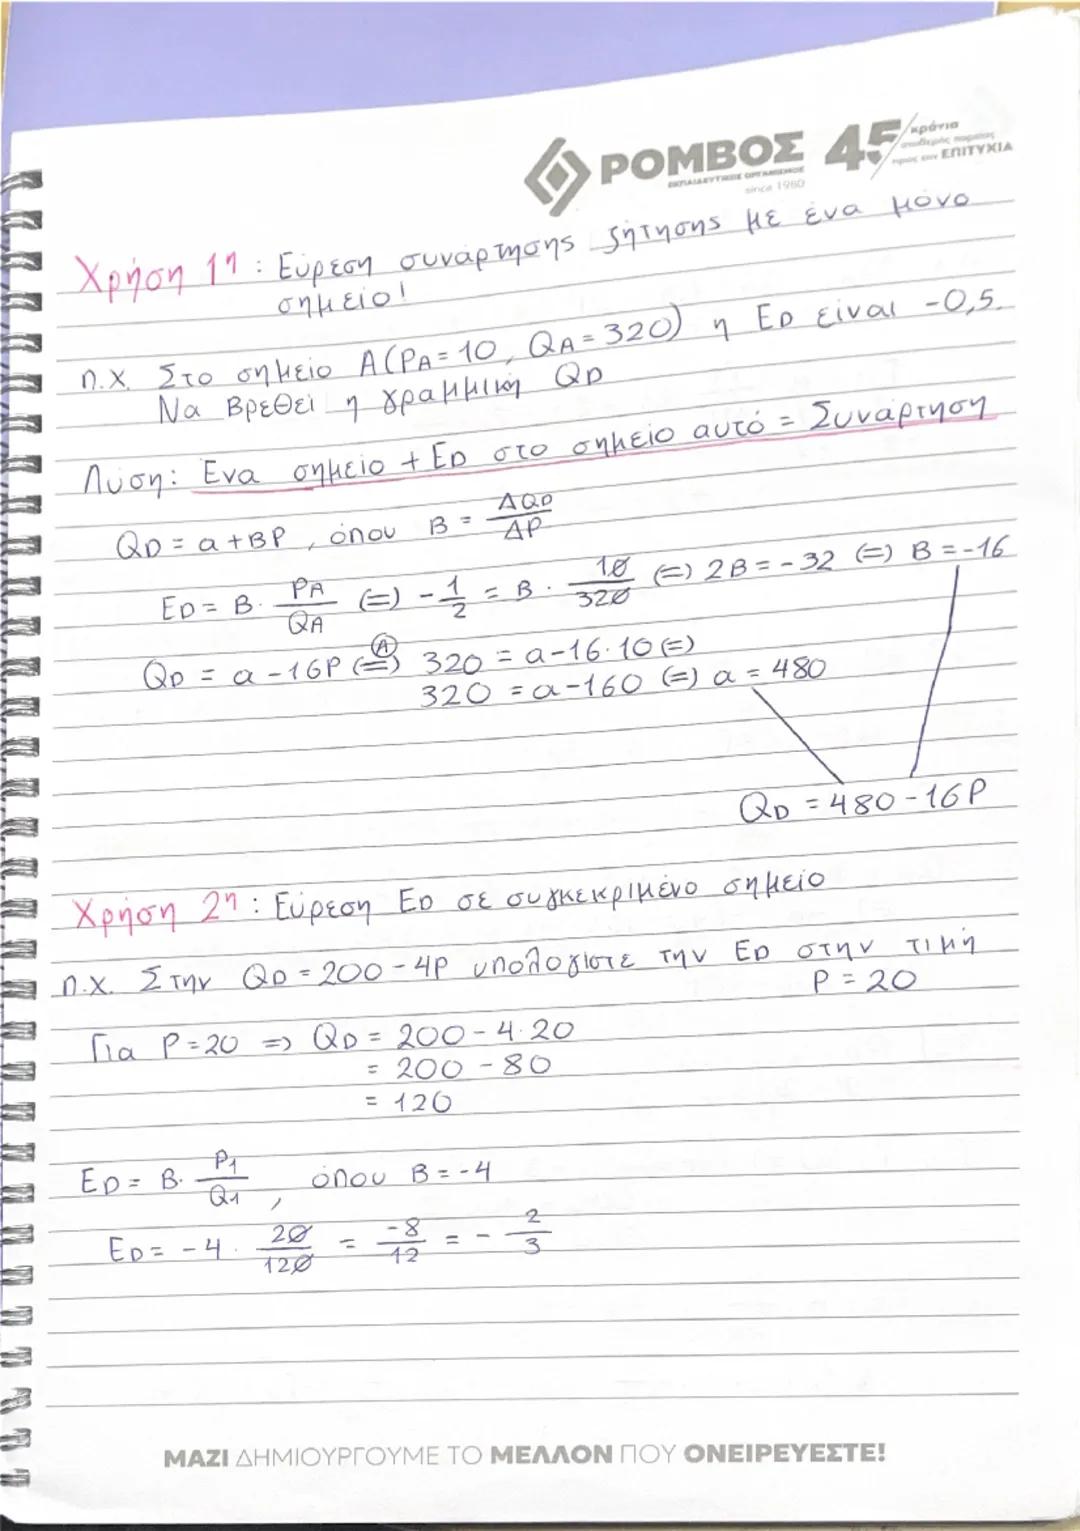 ΡΟΜΒΟΣ 45 χρόνια
σταθερής πορείας
ΕΚΠΑΙΔΕΥΤΙΚΟΣ ΟΡΓΑΝΙΣΜΟΣ προς την ΕΠΙΤΥΧΙΑ
since 1980
Χρήση 1η: Εύρεση συνάρτησης ζήτησης με ένα μόνο
σημείο!
π.χ. Στο σημείο A(PA=10, QA=320) η ED είναι -0,5.
Να βρεθεί η γραμμική QD
Λύση: Ένα σημείο + ED στο σημείο αυτό = Συνάρτηση
QD = α+ΒP, όπου Β = ΔQD/ΔP
ED = Β · PA/QA (=) -1/2 = Β · 10/320 (=) 2Β = -32 (=) Β = -16
QD = α - 16P (=)Ⓐ 320 = α - 16·10 (=)
320 = α - 160 (=) α = 480
QD = 480 - 16P
Χρήση 2η: Εύρεση ED σε συγκεκριμένο σημείο
π.χ. Στην QD = 200 - 4P υπολογίστε την ED στην τιμή
P = 20
Για P = 20 => QD = 200 - 4·20
= 200 - 80
= 120
ED = Β · P1/Q1, όπου Β = -4
ED = -4 · 20/120 = -8/12 = -2/3
ΜΑΖΙ ΔΗΜΙΟΥΡΓΟΥΜΕ ΤΟ ΜΕΛΛΟΝ ΠΟΥ ΟΝΕΙΡΕΥΕΣΤΕ!